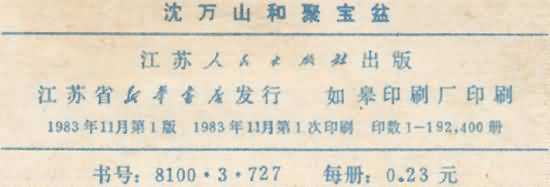 沈万山和聚宝盆
江苏人民出版社出版
江苏省新华书店发行 如皋印刷厂印刷
1983年11月第1版 1983年11月第1次印刷 印数1-192,400册
书号：8100·3·727 每册：0.23元